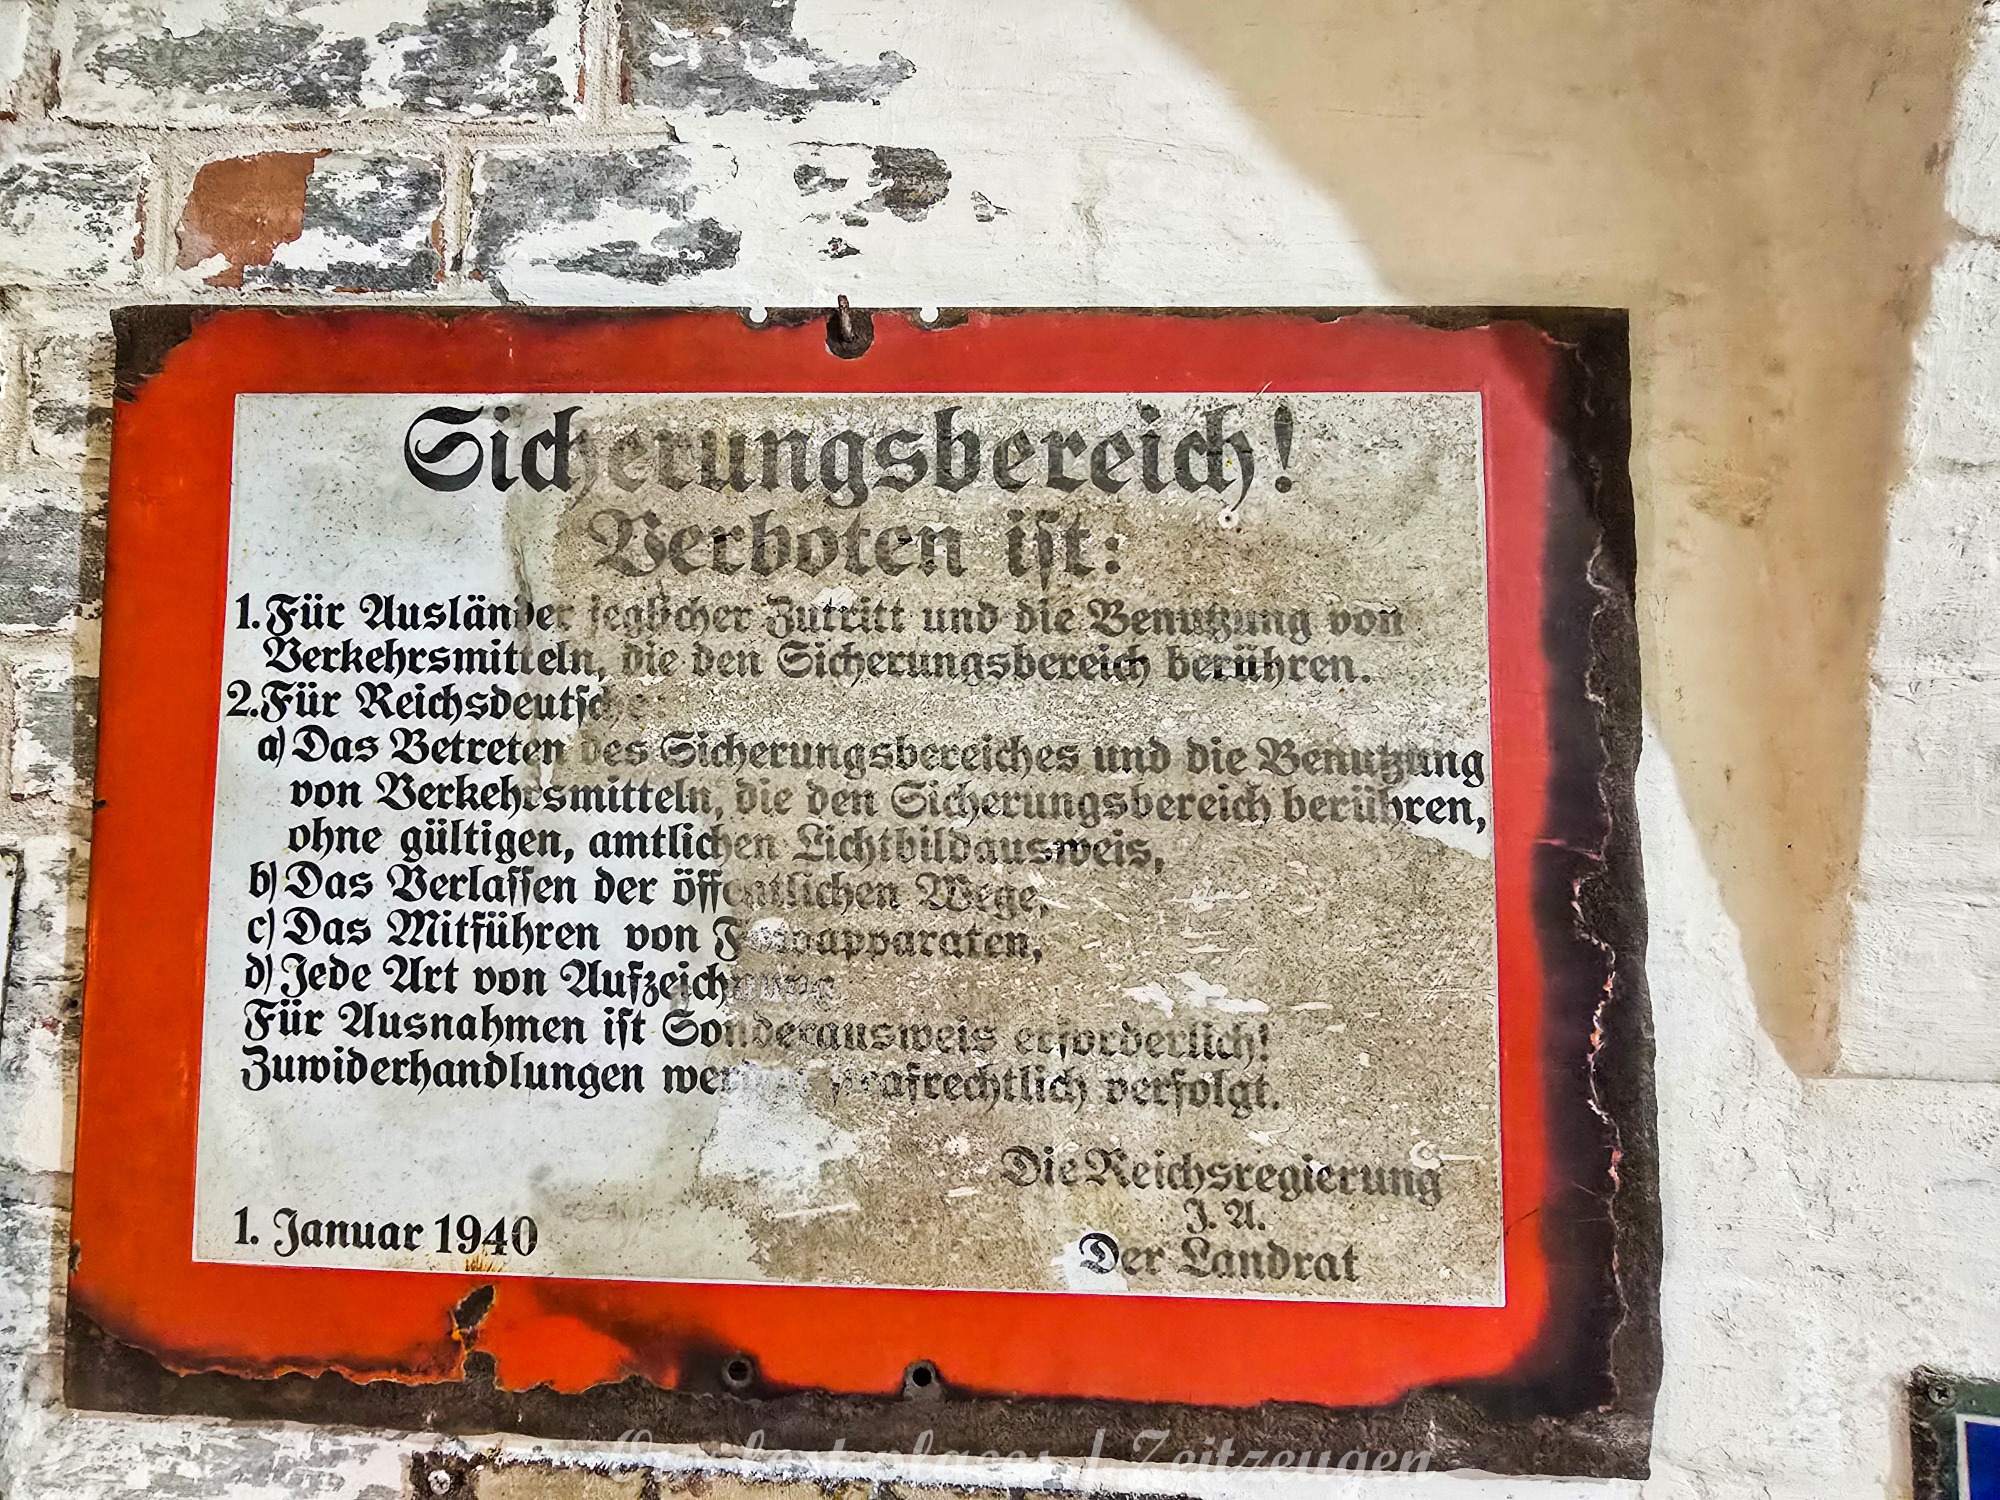 Sicherungsbereich!
Verboten ist:
1. Für Ausländer jeglicher Zutritt und die Benutzung von
Verkehrsmitteln, die den Sicherungsbereich berühren.
2. Für Reichsdeutsche:
a) Das Betreten des Sicherungsbereiches und die Benutzung
von Verkehrsmitteln, die den Sicherungsbereich berühren,
ohne gültigen, amtlichen Lichtbildausweis,
b) Das Verlassen der öffentlichen Wege,
c) Das Mitführen von Fotoapparaten,
d) Jede Art von Aufzeichnung.
Für Ausnahmen ist Sonderausweis erforderlich!
Zuwiderhandlungen werden strafrechtlich verfolgt.
Die Reichsregierung
J. A.
Der Landrat
1. Januar 1940
lost places | Zeitzeugen